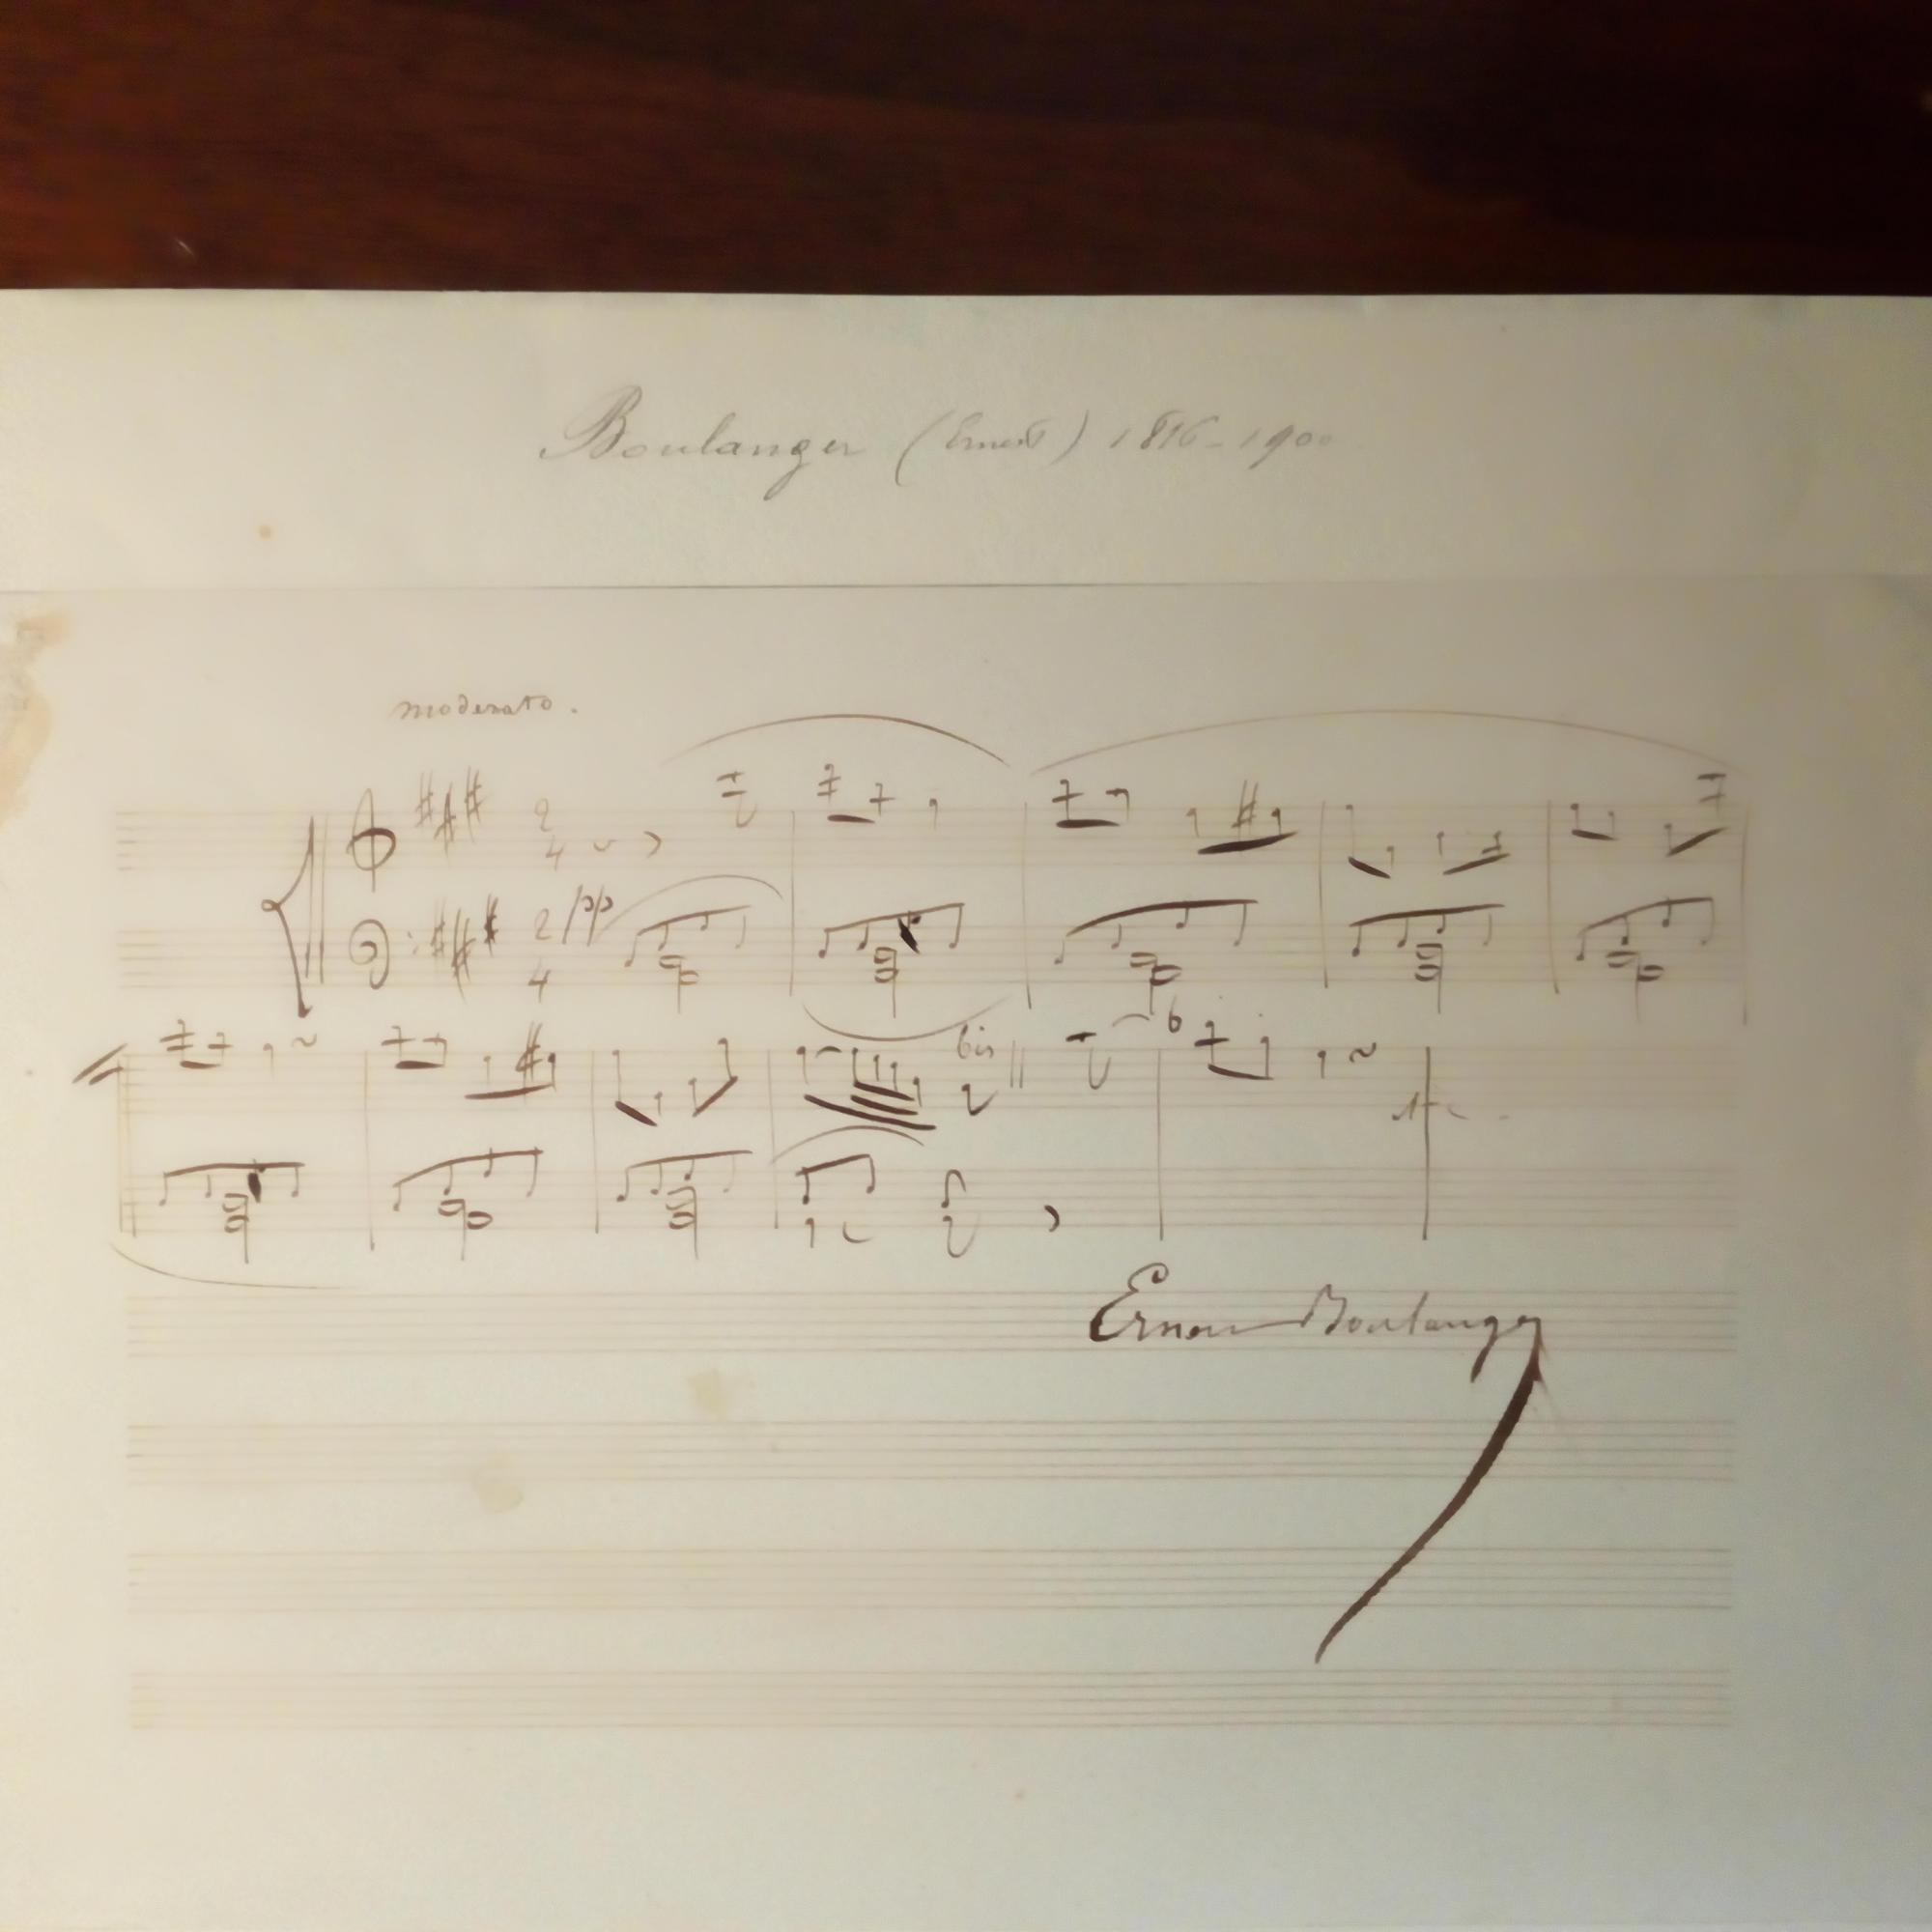 Boulanger (Ernest) 1816-1900
moderato.
2
4
2 pp
4
bis
Ernest Boulanger